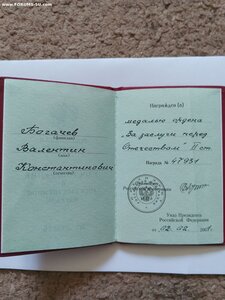 www.FORUMS-SU.com
Богачев
(фамилия)
Валентин
(имя)
Константинович
(отчество)
Награжден (а)
медалью ордена
"За заслуги перед
Отечеством" II ст.
Награда № 47931
Российской Федерации
Указ Президента
Российской Федерации
от 02.02.